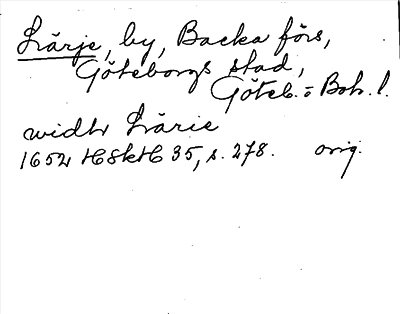 Lärje, by, Backa förs,
Göteborgs stad,
Göteb. o Boh. l.
widh Lärie
1652 HSkH 35, s. 278. orig.